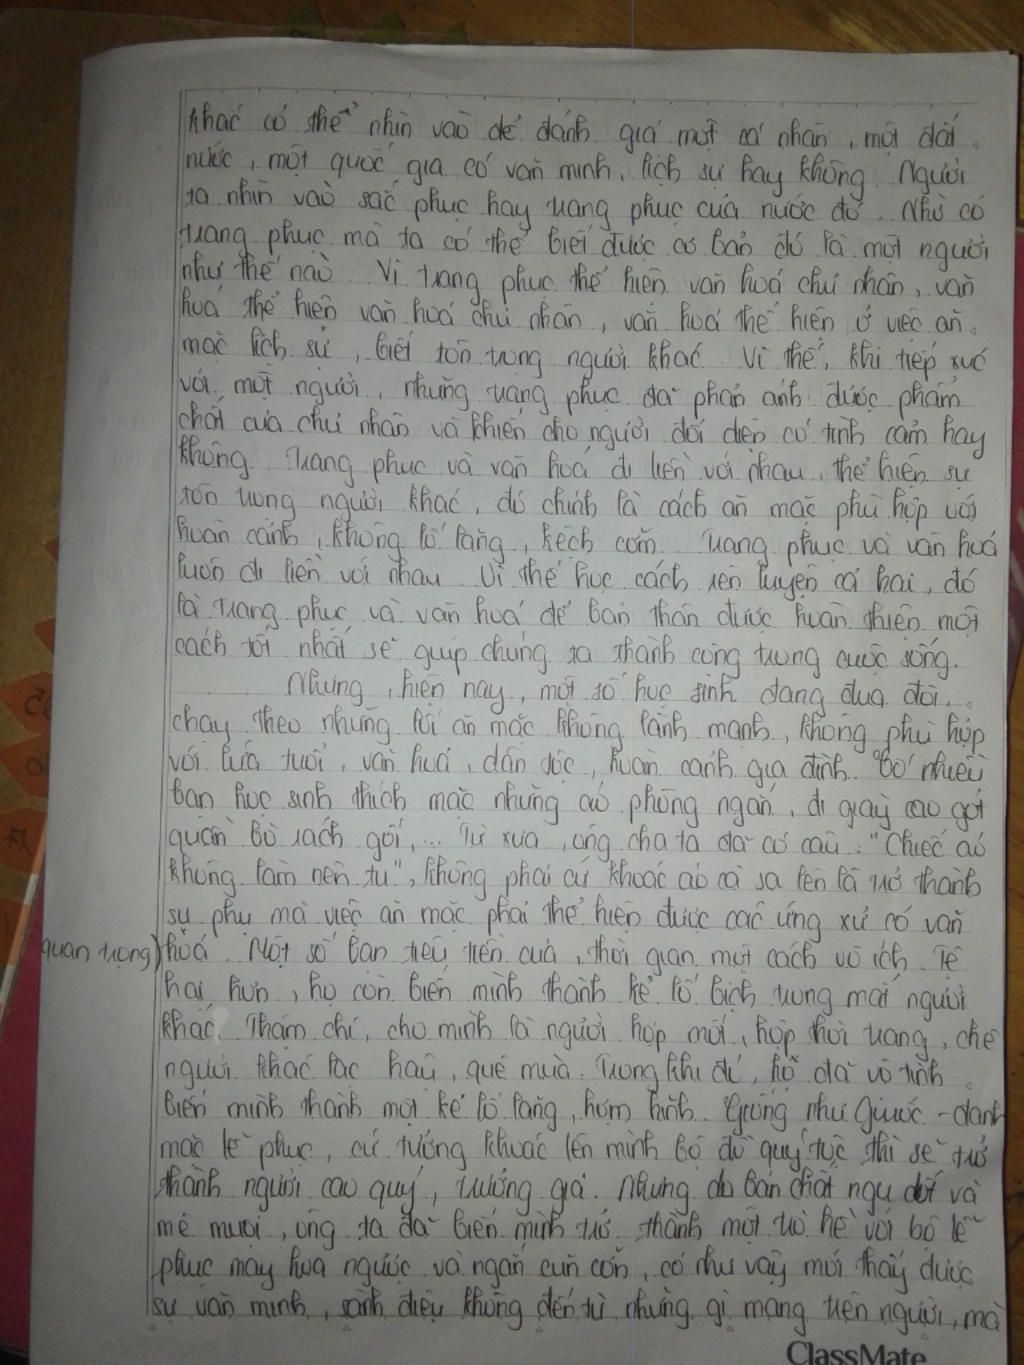 khác có thể nhìn vào để đánh giá một cá nhân, một đất
nước, một quốc gia có văn minh, lịch sự hay không. Người
ta nhìn vào sắc phục hay trang phục của nước đó. Nhờ có
trang phục mà ta có thể biết được cơ bản đó là một người
như thế nào. Vì trang phục thể hiện văn hoá chủ nhân, văn
hoá thể hiện văn hoá chủ nhân, văn hoá thể hiện ở việc ăn
mặc lịch sự, biết tôn trọng người khác. Vì thế, khi tiếp xúc
với một người, những trang phục đã phản ánh được phẩm
chất của chủ nhân và khiến cho người đối diện có tình cảm hay
không. Trang phục và văn hoá đi liền với nhau, thể hiện sự
tôn trọng người khác, đó chính là cách ăn mặc phù hợp với
hoàn cảnh, không lố lăng, kệch cỡm. Trang phục và văn hoá
luôn đi liền với nhau. Vì thế học cách rèn luyện cả hai, đó
là trang phục và văn hoá để bản thân được hoàn thiện một
cách tốt nhất sẽ giúp chúng ta thành công trong cuộc sống.
Nhưng, hiện nay, một số học sinh đang đua đòi,
chạy theo những lối ăn mặc không lành mạnh, không phù hợp
với lứa tuổi, văn hoá, dân tộc, hoàn cảnh gia đình. Có nhiều
bạn học sinh thích mặc những áo phông ngắn, đi giày cao gót
quần bò rách gối,... Từ xưa, ông cha ta đã có câu: "Chiếc áo
không làm nên tu", không phải cứ khoác áo cà sa lên là trở thành
sư phụ mà việc ăn mặc phải thể hiện được các ứng xử có văn
quan trọng) hoá. Một số bạn tiêu tiền của, thời gian một cách vô ích. Tệ
hại hơn, họ còn biến mình thành kẻ lố bịch trong mắt người
khác. Thậm chí, cho mình là người hợp mốt, hợp thời trang, chê
người khác lạc hậu, quê mùa. Trong khi đó, họ đã vô tình
biến mình thành một kẻ lố lăng, hợm hĩnh. Giống như Giuốc-đanh
mặc lễ phục, cứ tưởng khoác lên mình bộ đồ quý tộc thì sẽ trở
thành người cao quý, trưởng giả. Nhưng do bản chất ngu dốt và
mê muội, ông ta đã biến mình trở thành một trò hề với bộ lễ
phục may hoa ngược và ngắn cũn cỡn, có như vậy mới thấy được
sự văn minh, sành điệu không đến từ những gì mang trên người, mà
ClassMate